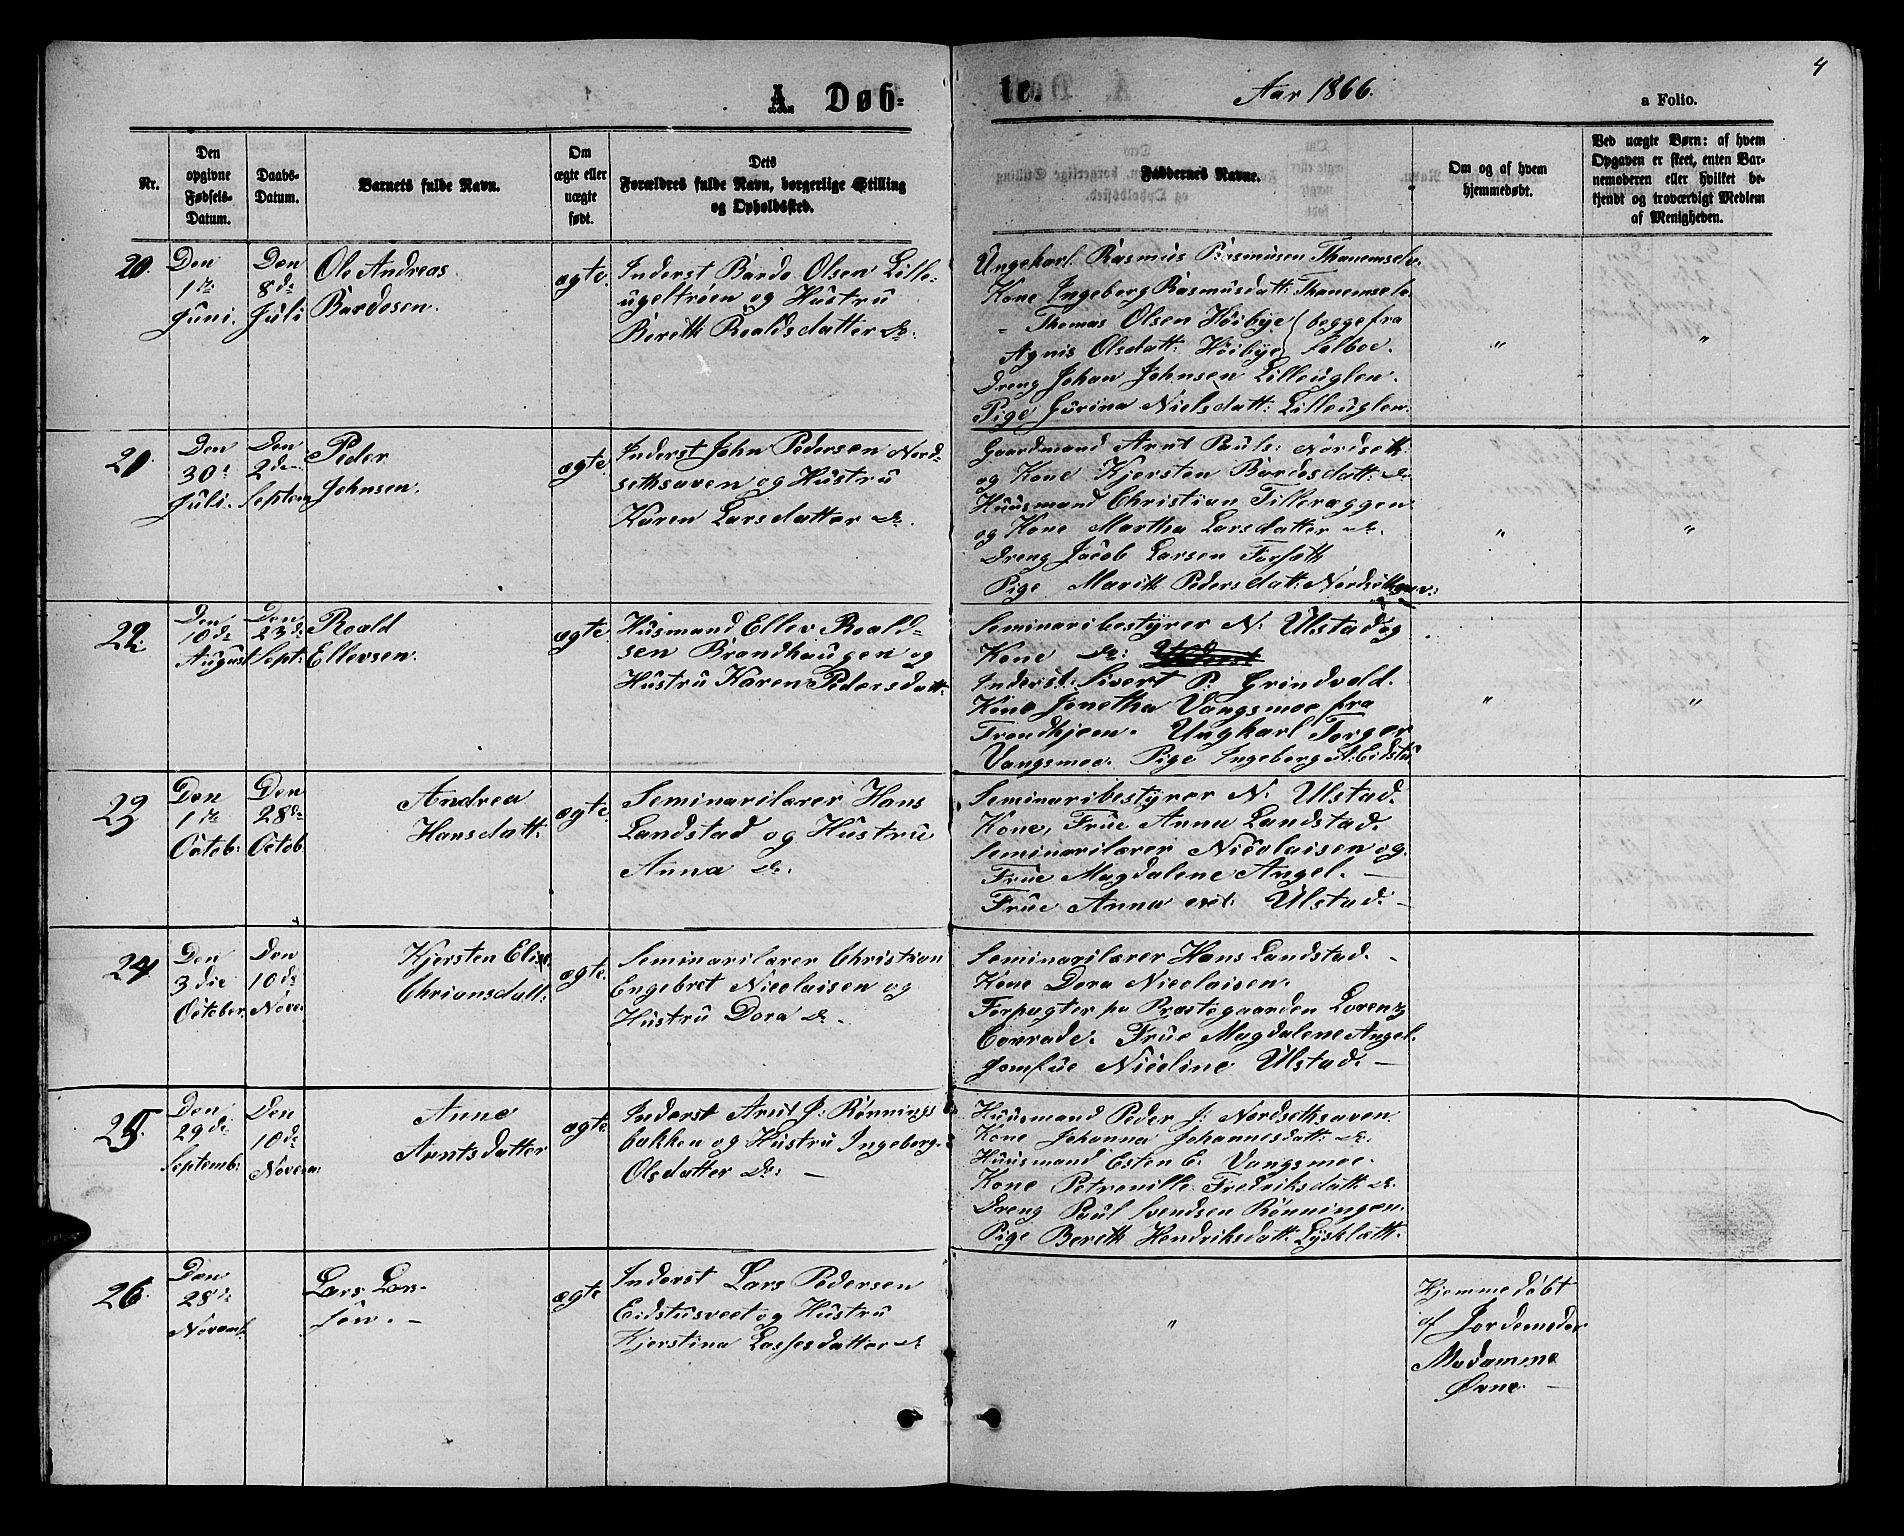 A. Døb-
te.
Aar 1866.
a Folio.
4
Nr.
Den
opgivne
Fødsels-
Datum.
Daabs-
Datum.
Barnets fulde Navn.
Om
ægte eller
uægte
født.
Dets
Forældres fulde Navn, borgerlige Stilling
og Opholdssted.
Faddernes Navne.
Om og af hvem
hjemmedøbt.
Ved uægte Børn: af hvem
Opgaven er skeet, enten Bar-
nemoderen eller hvilket be-
kjendt og troværdigt Medlem
af Menigheden.
20.
Den
1te
Juni.
Den
8de
Juli
Ole Andreas
Bardosen.
ægte.
Inderst Bardo Olsen Lille-
ugeltrøen og Hustru
Berett Roaldsdatter do.
Ungekarl Rasmus Rasmusen Thanemselv.
Kone Ingeborg Rasmusdatt: Thanemselv.
" Thomas Olsen Höibye } begge fra
Agnis Olsdatt: Höibye } Selboe.
Dreng Johan Johnsen Lilleuglen.
Pige Gurina Nielsdatt: Lilleuglen.
"
"
21.
Den
30t
Juli.
Den
2den
Septem
Peder
Johnsen.
ægte.
Inderst John Pedersen Nord-
sethsaven og Hustru
Karen Larsdatter do.
Gaardmand Arnt Pauls: Nordseth
og Kone Kjersten Bardosdatt: do
Huusmand Christian Tilleræggen
og Kone Martha Larsdatter do.
Dreng Jacob Larsen Forseth
Pige Marith Pedersdatt: Nordsethsav:
"
"
22.
Den
10de
August
Den
23de
Sept:
Roald
Ellevsen.
ægte
Husmand Ellev Roald-
sen Brandhaugen og
Hustru Karen Pedersdatt:
Seminaribestyrer N. Ulstad og
Kone do:
Inderst Sivert P. Grindvold.
Kone Jonetha Vangsmoe fra
Trondhjem. Ungkarl Torger
Vangsmoe. Pige Ingeborg A. Eidstu
"
"
23
Den
1te
Octob:
Den
28de
Octob
Andrea
Hansdatt:
ægte.
Seminarilærer Hans
Landstad og Hustru
Anna do.
Seminaribestyrer N. Ulstad.
Kone, Frue Anna Landstad.
Seminarilærer Nicolaisen og.
Frue Magdalene Angel. —
Frue Anna Ulstad. —
24
Den
3die
October.
Den
10de
Novem
Kjersten Elise
Chriansdatt:
ægte.
Seminarilærer Christian
Engebret Nicolaisen og
Hustru Dora do.
Seminarilærer Hans Landstad. -
Kone Dora Nicolaisen.
Forpagter pa Præstegaarden Lorenz
Conrade. Frue Magdalene Angel.
Jomfue Nicoline Ulstad. —
25.
Den
29de
Septemb:
Den
10de
Novem:
Anne
Arntsdatter
ægte
Inderst Arnt J: Rønnings
bakken og Hustru Ingeborg
Olsdatter do: —
Huusmand Peder J: Nordsethsaven
Kone Johanna Johannisdatt: do.
Huusmand Esten E. Vangsmoe.
Kone Petronille Fredriksdatt: do.
Dreng Paul Svendsen Rønningen.
Pige Bereth Hendriksdatt: Lysklætt.
26.
Den
28de
Novemb
Lars Lars-
søn. —
ægte
Inderst Lars Pedersen
Eidstusveet og Hustru
Kjerstina Lassesdatter do
"
Hjemmedøbt
af Jordemoder
Madamme
Øvne. —